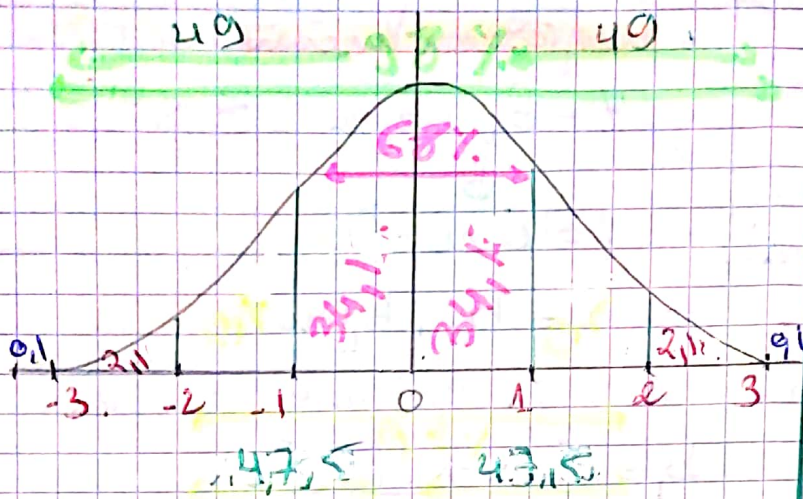 49 98 % 49
68%
34,1. 34,1.
0,1 2,1 2,1. 0,1
-3. -2 -1 0 1 2 3
47,5 47,5